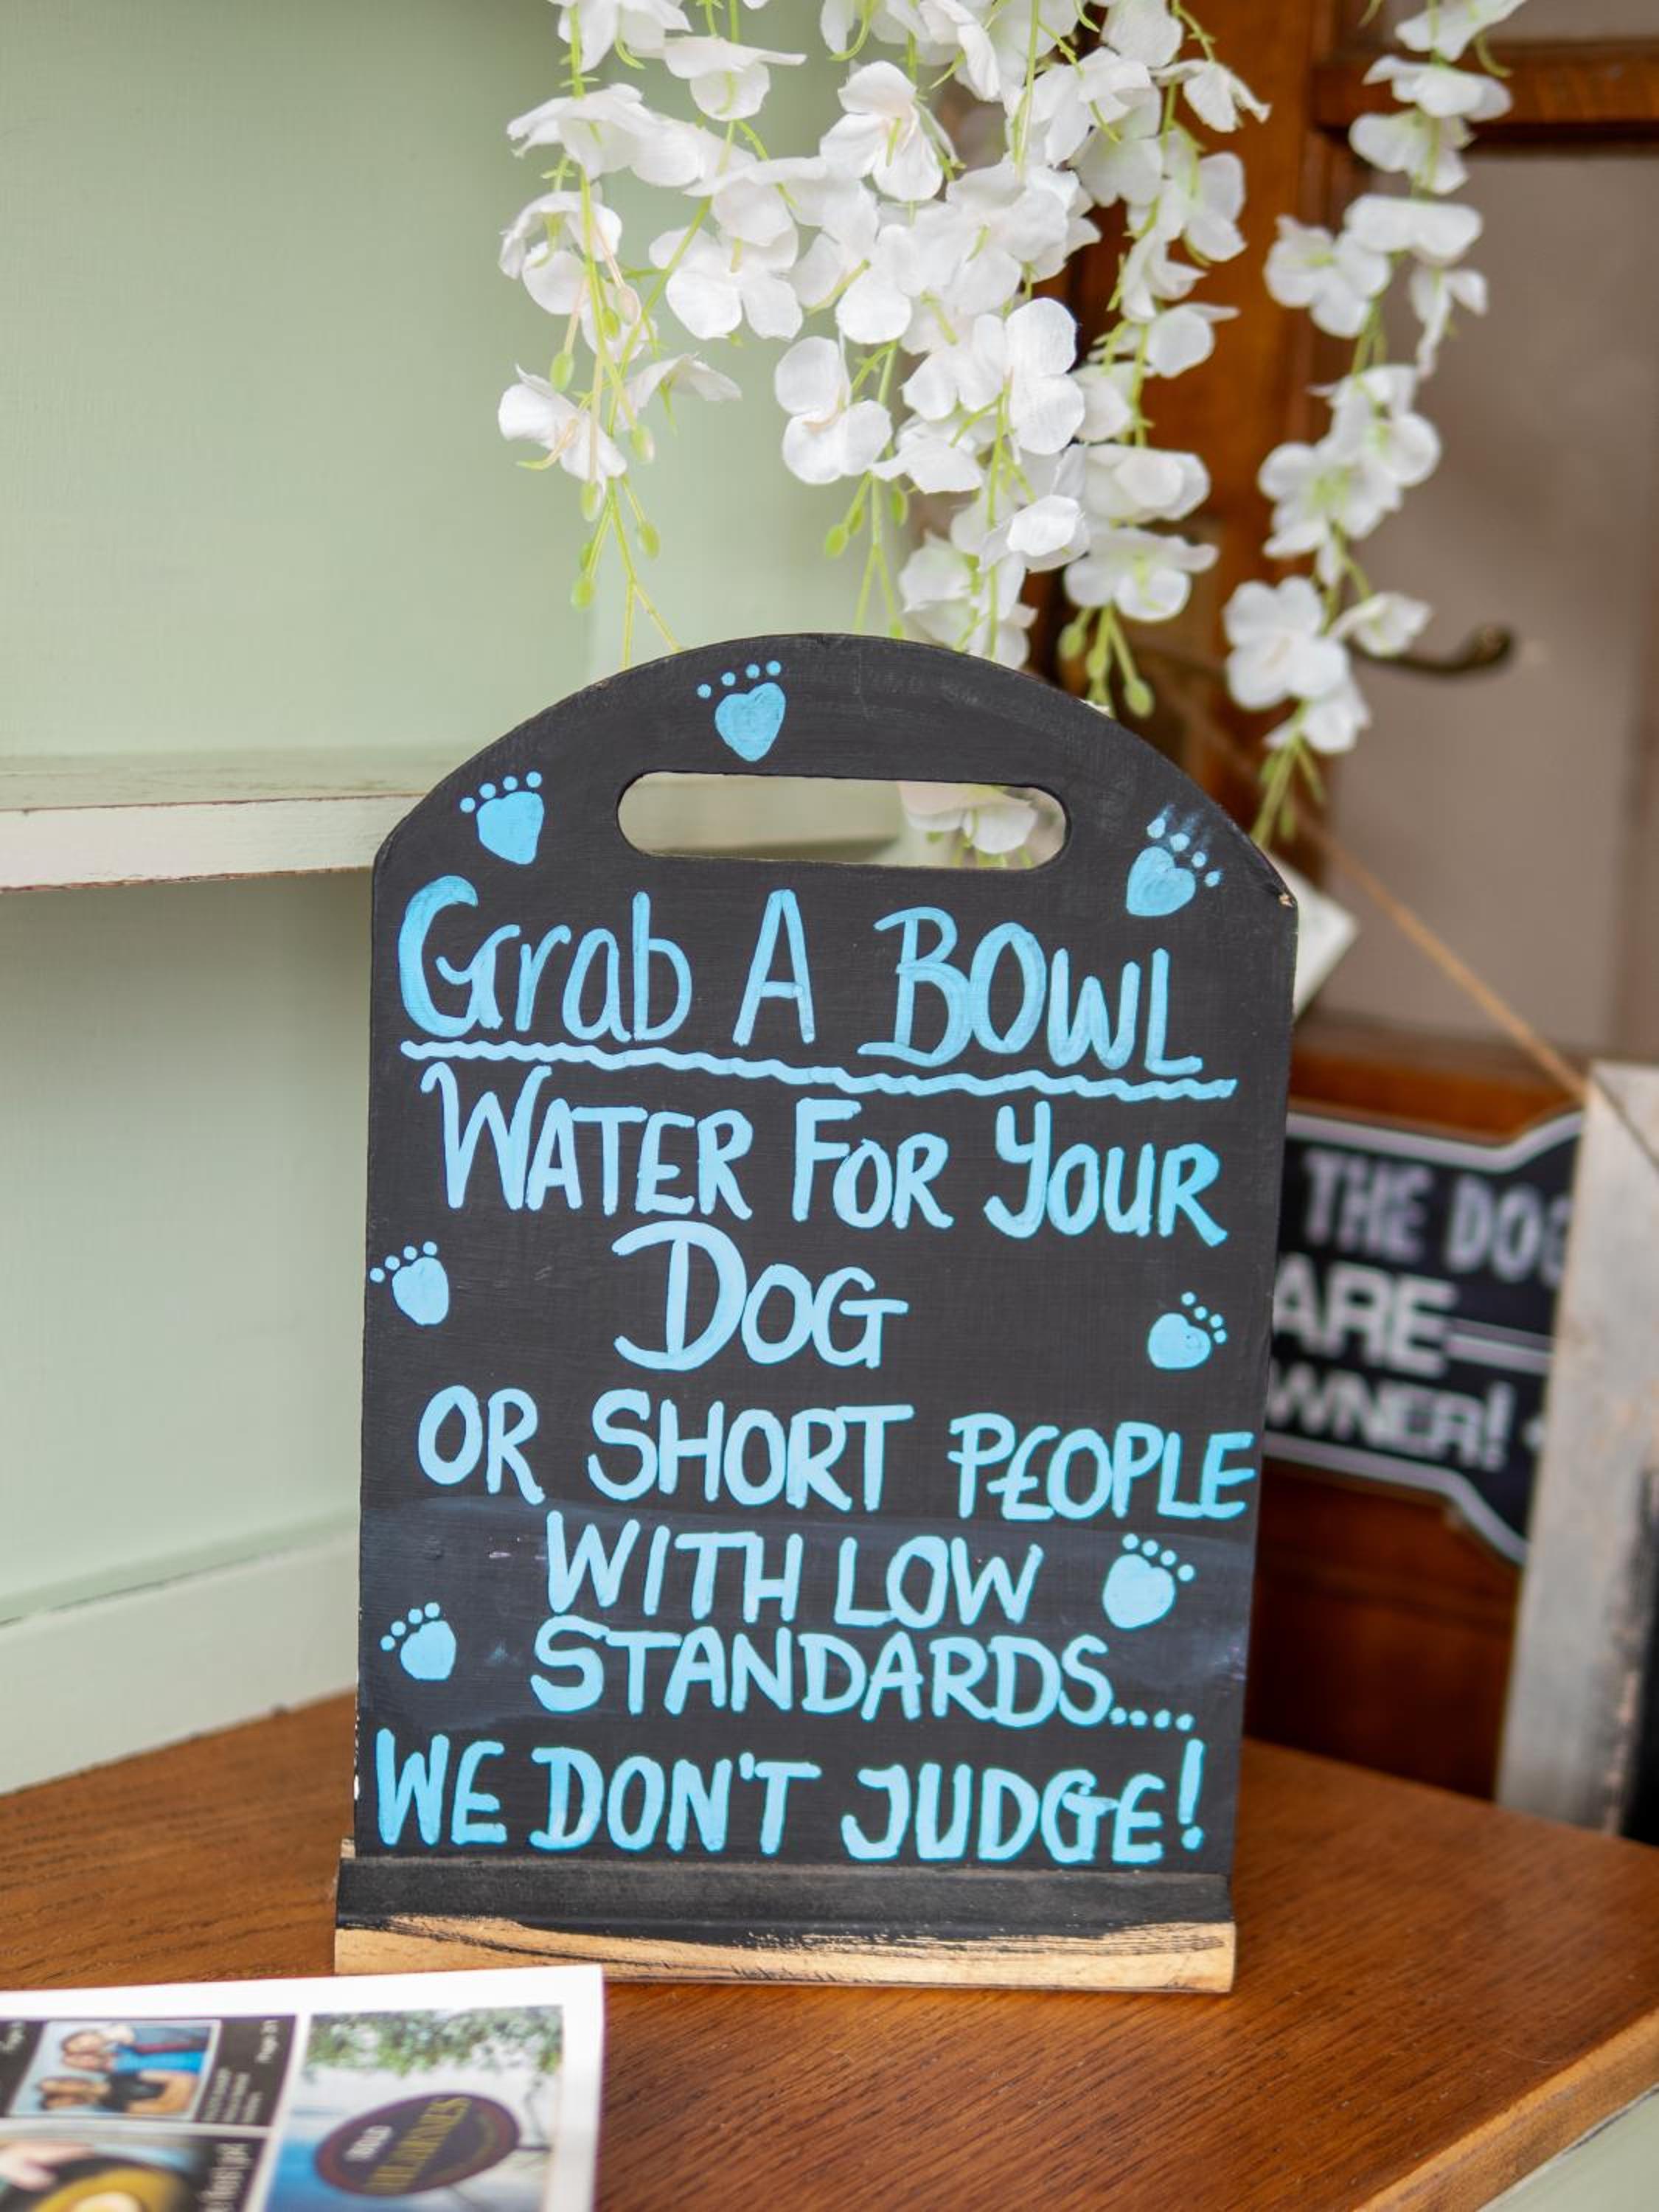 Grab A BOWL
WATER FOR YOUR
DOG
OR SHORT PEOPLE
WITH LOW
STANDARDS....
WE DON'T JUDGE!
THE DOG
ARE
WNER!